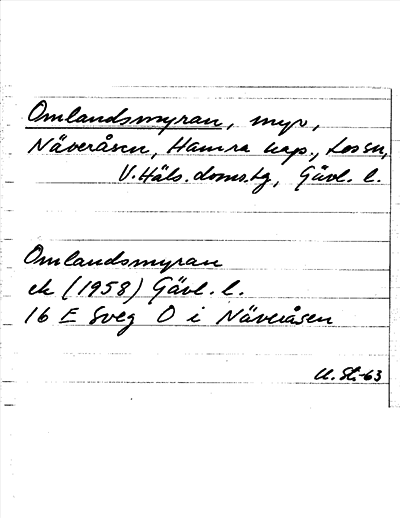 Omlandsmyran, myr,
Näveråsen, Hamra kap., Los sn,
V.Häls.doms.tg, Gävl. l.
Omlandsmyran
ek (1958) Gävl. l.
16 E Sveg O i Näveråsen
U. St.-63